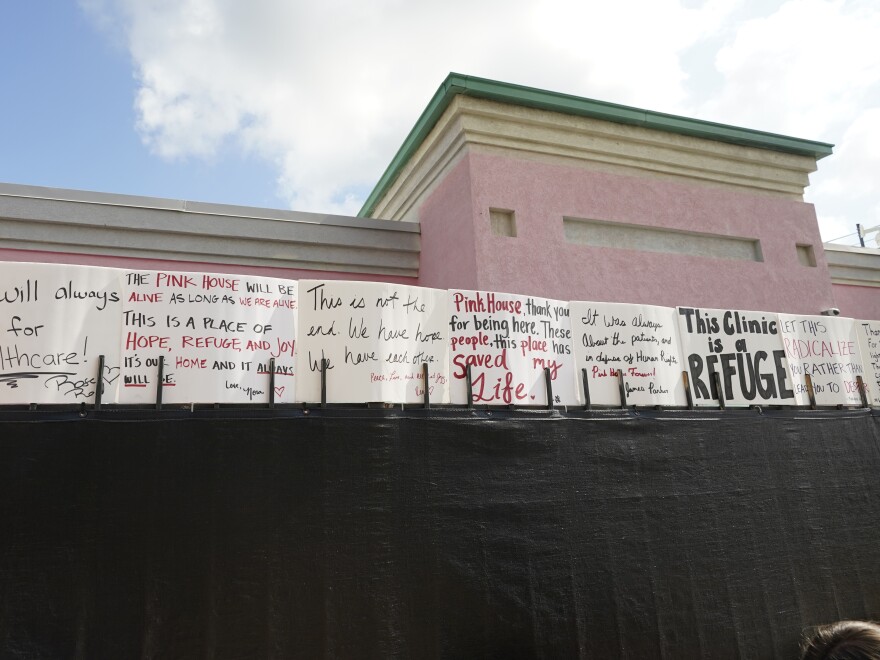 will always
for
lthcare!
THE PINK HOUSE WILL BE
ALIVE AS LONG AS WE ARE ALIVE.
THIS IS A PLACE OF
HOPE, REFUGE, AND JOY.
IT'S OUR HOME AND IT ALWAYS
WILL BE.
Love,
This is not the
end. We have hope
We have each other.
Peace, Love, and
Pink House, thank you
for being here. These
people, this place has
saved my
Life!
It was always
About the patients, and
in defense of Human Rights
Pink House Forever!
James Parker
This Clinic
is a
REFUGE
LET THIS
RADICALIZE
YOU RATHER THAN
LEAD YOU TO